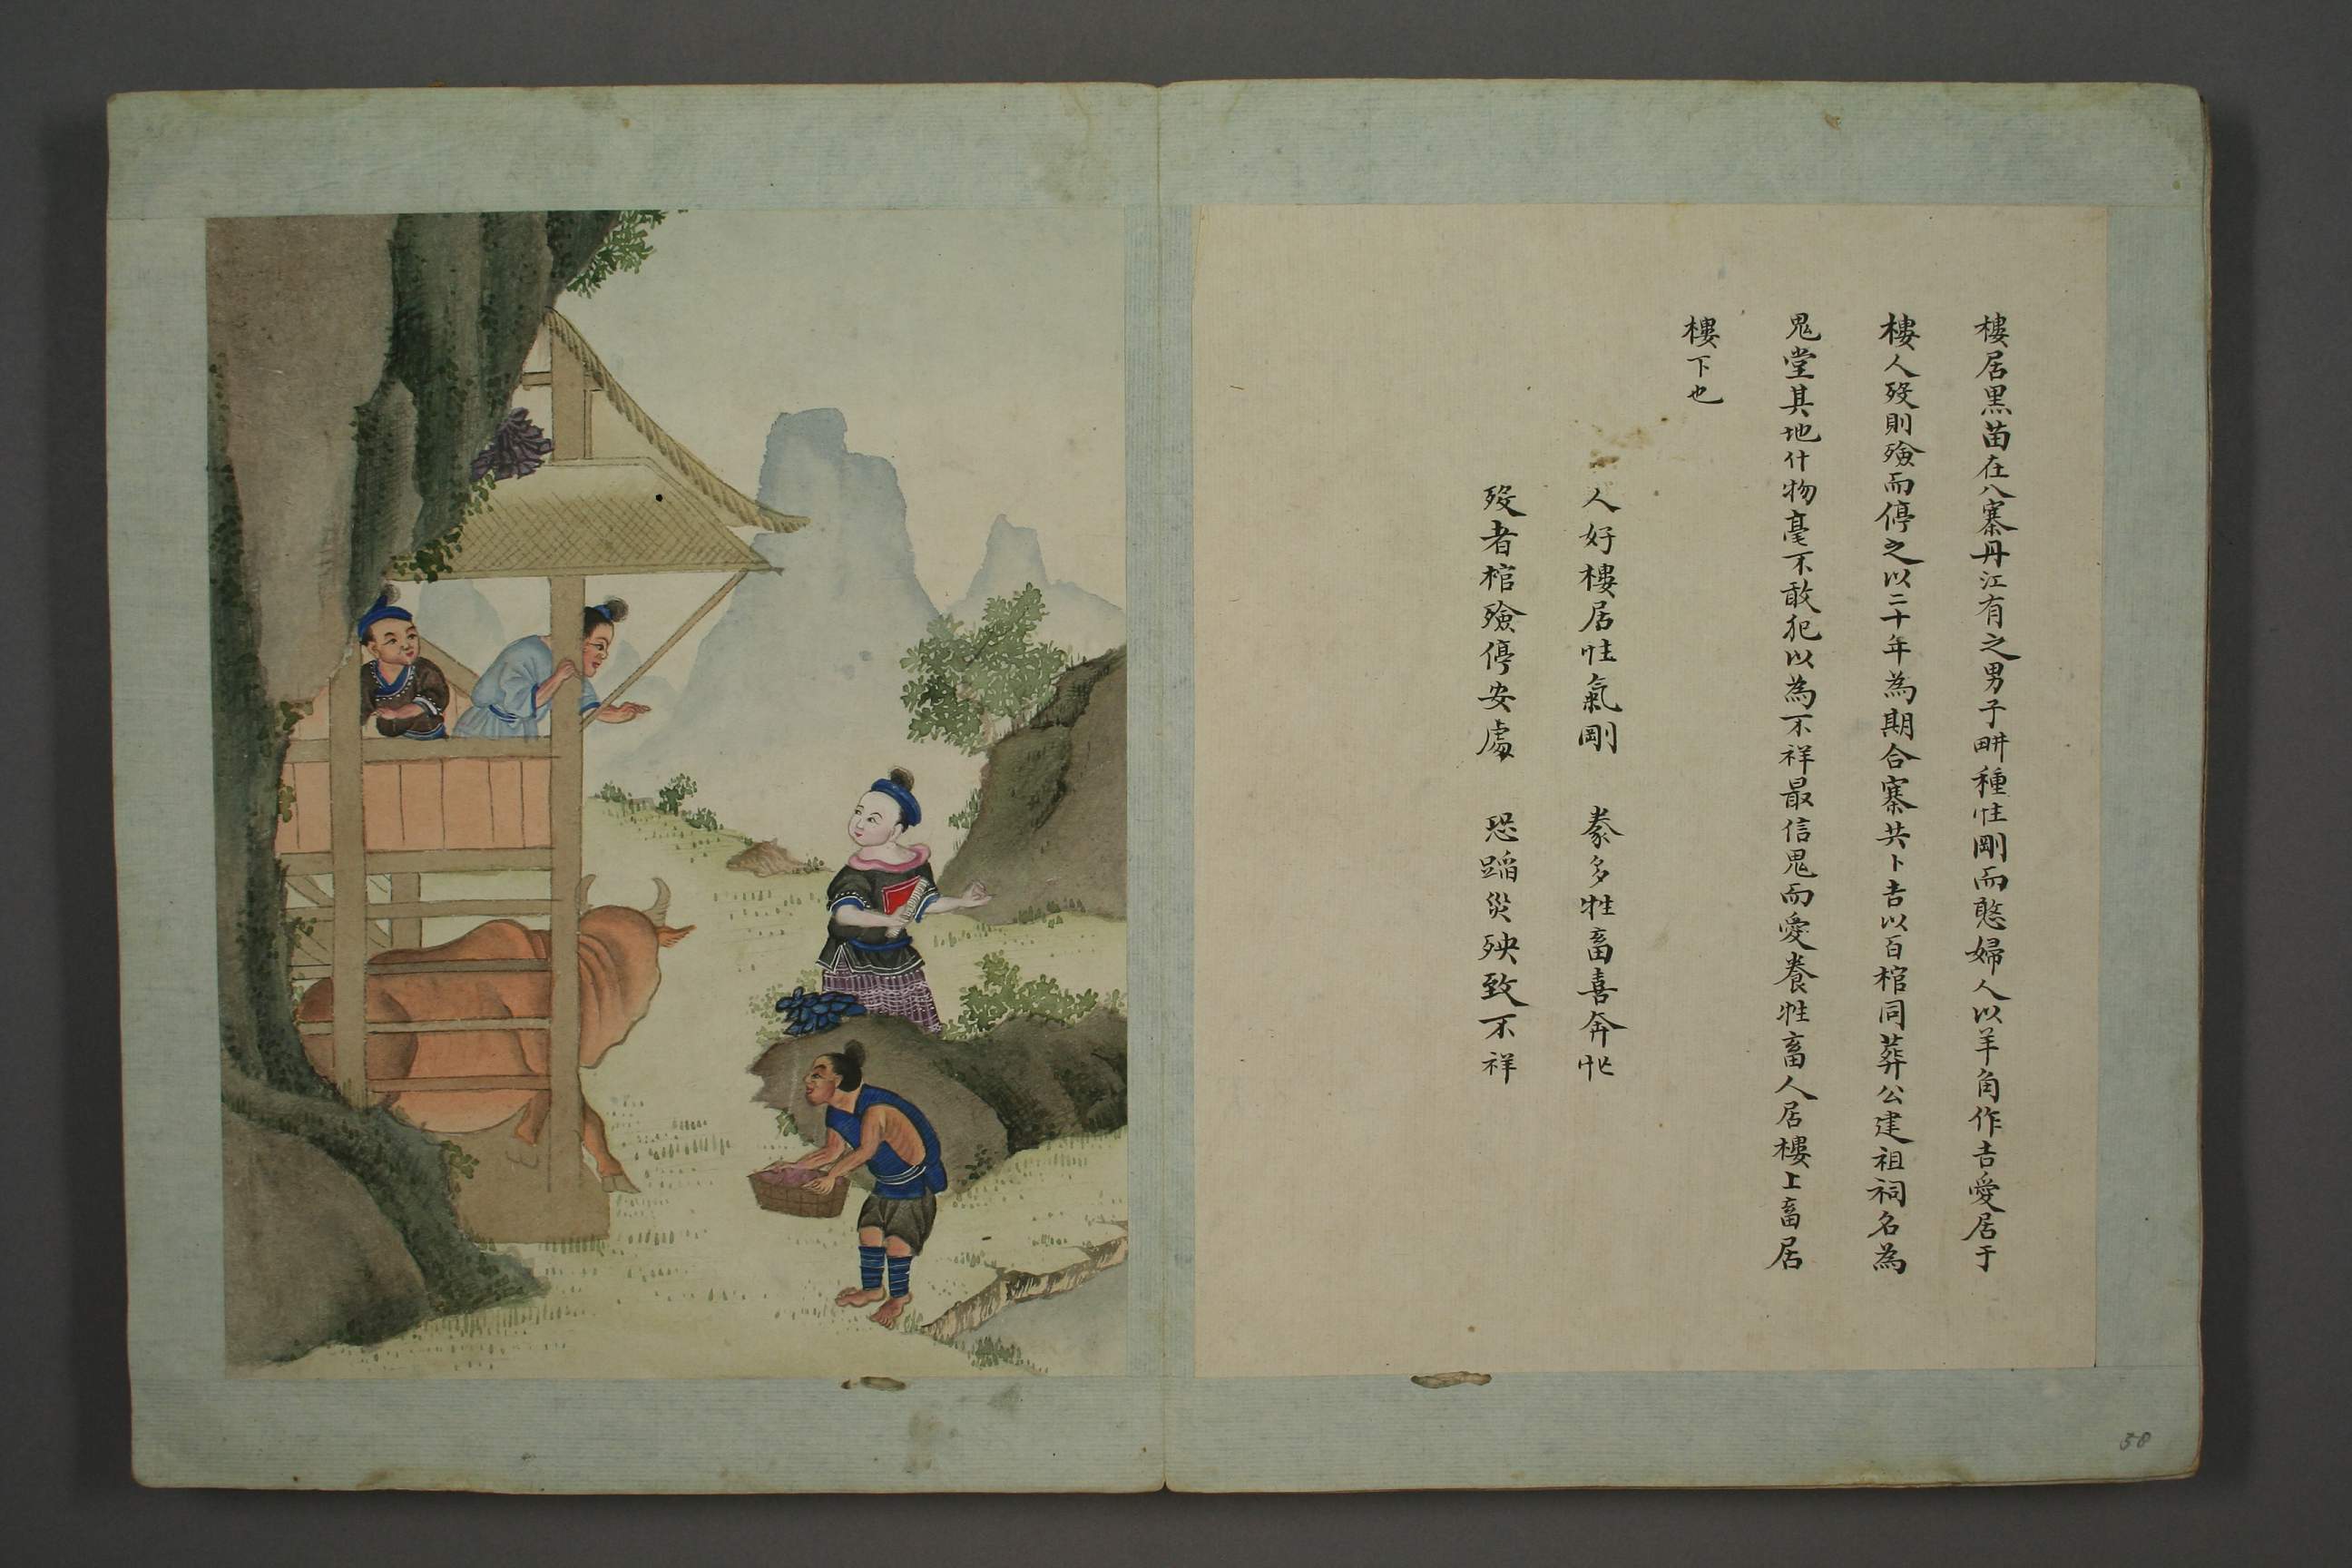 樓居黑苗在八寨丹江有之男子畊種性剛而憨婦人以羊角作吉愛居于
樓人歿則殮而停之以二十年為期合寨共卜吉以百棺同葬公建祖祠名為
鬼堂其地什物毫不敢犯以為不祥最信鬼而愛養牲畜人居樓上畜居
樓下也
人好樓居性氣剛 豢多牲畜喜奔忙
歿者棺殮停安處 恐蹈災殃致不祥
38